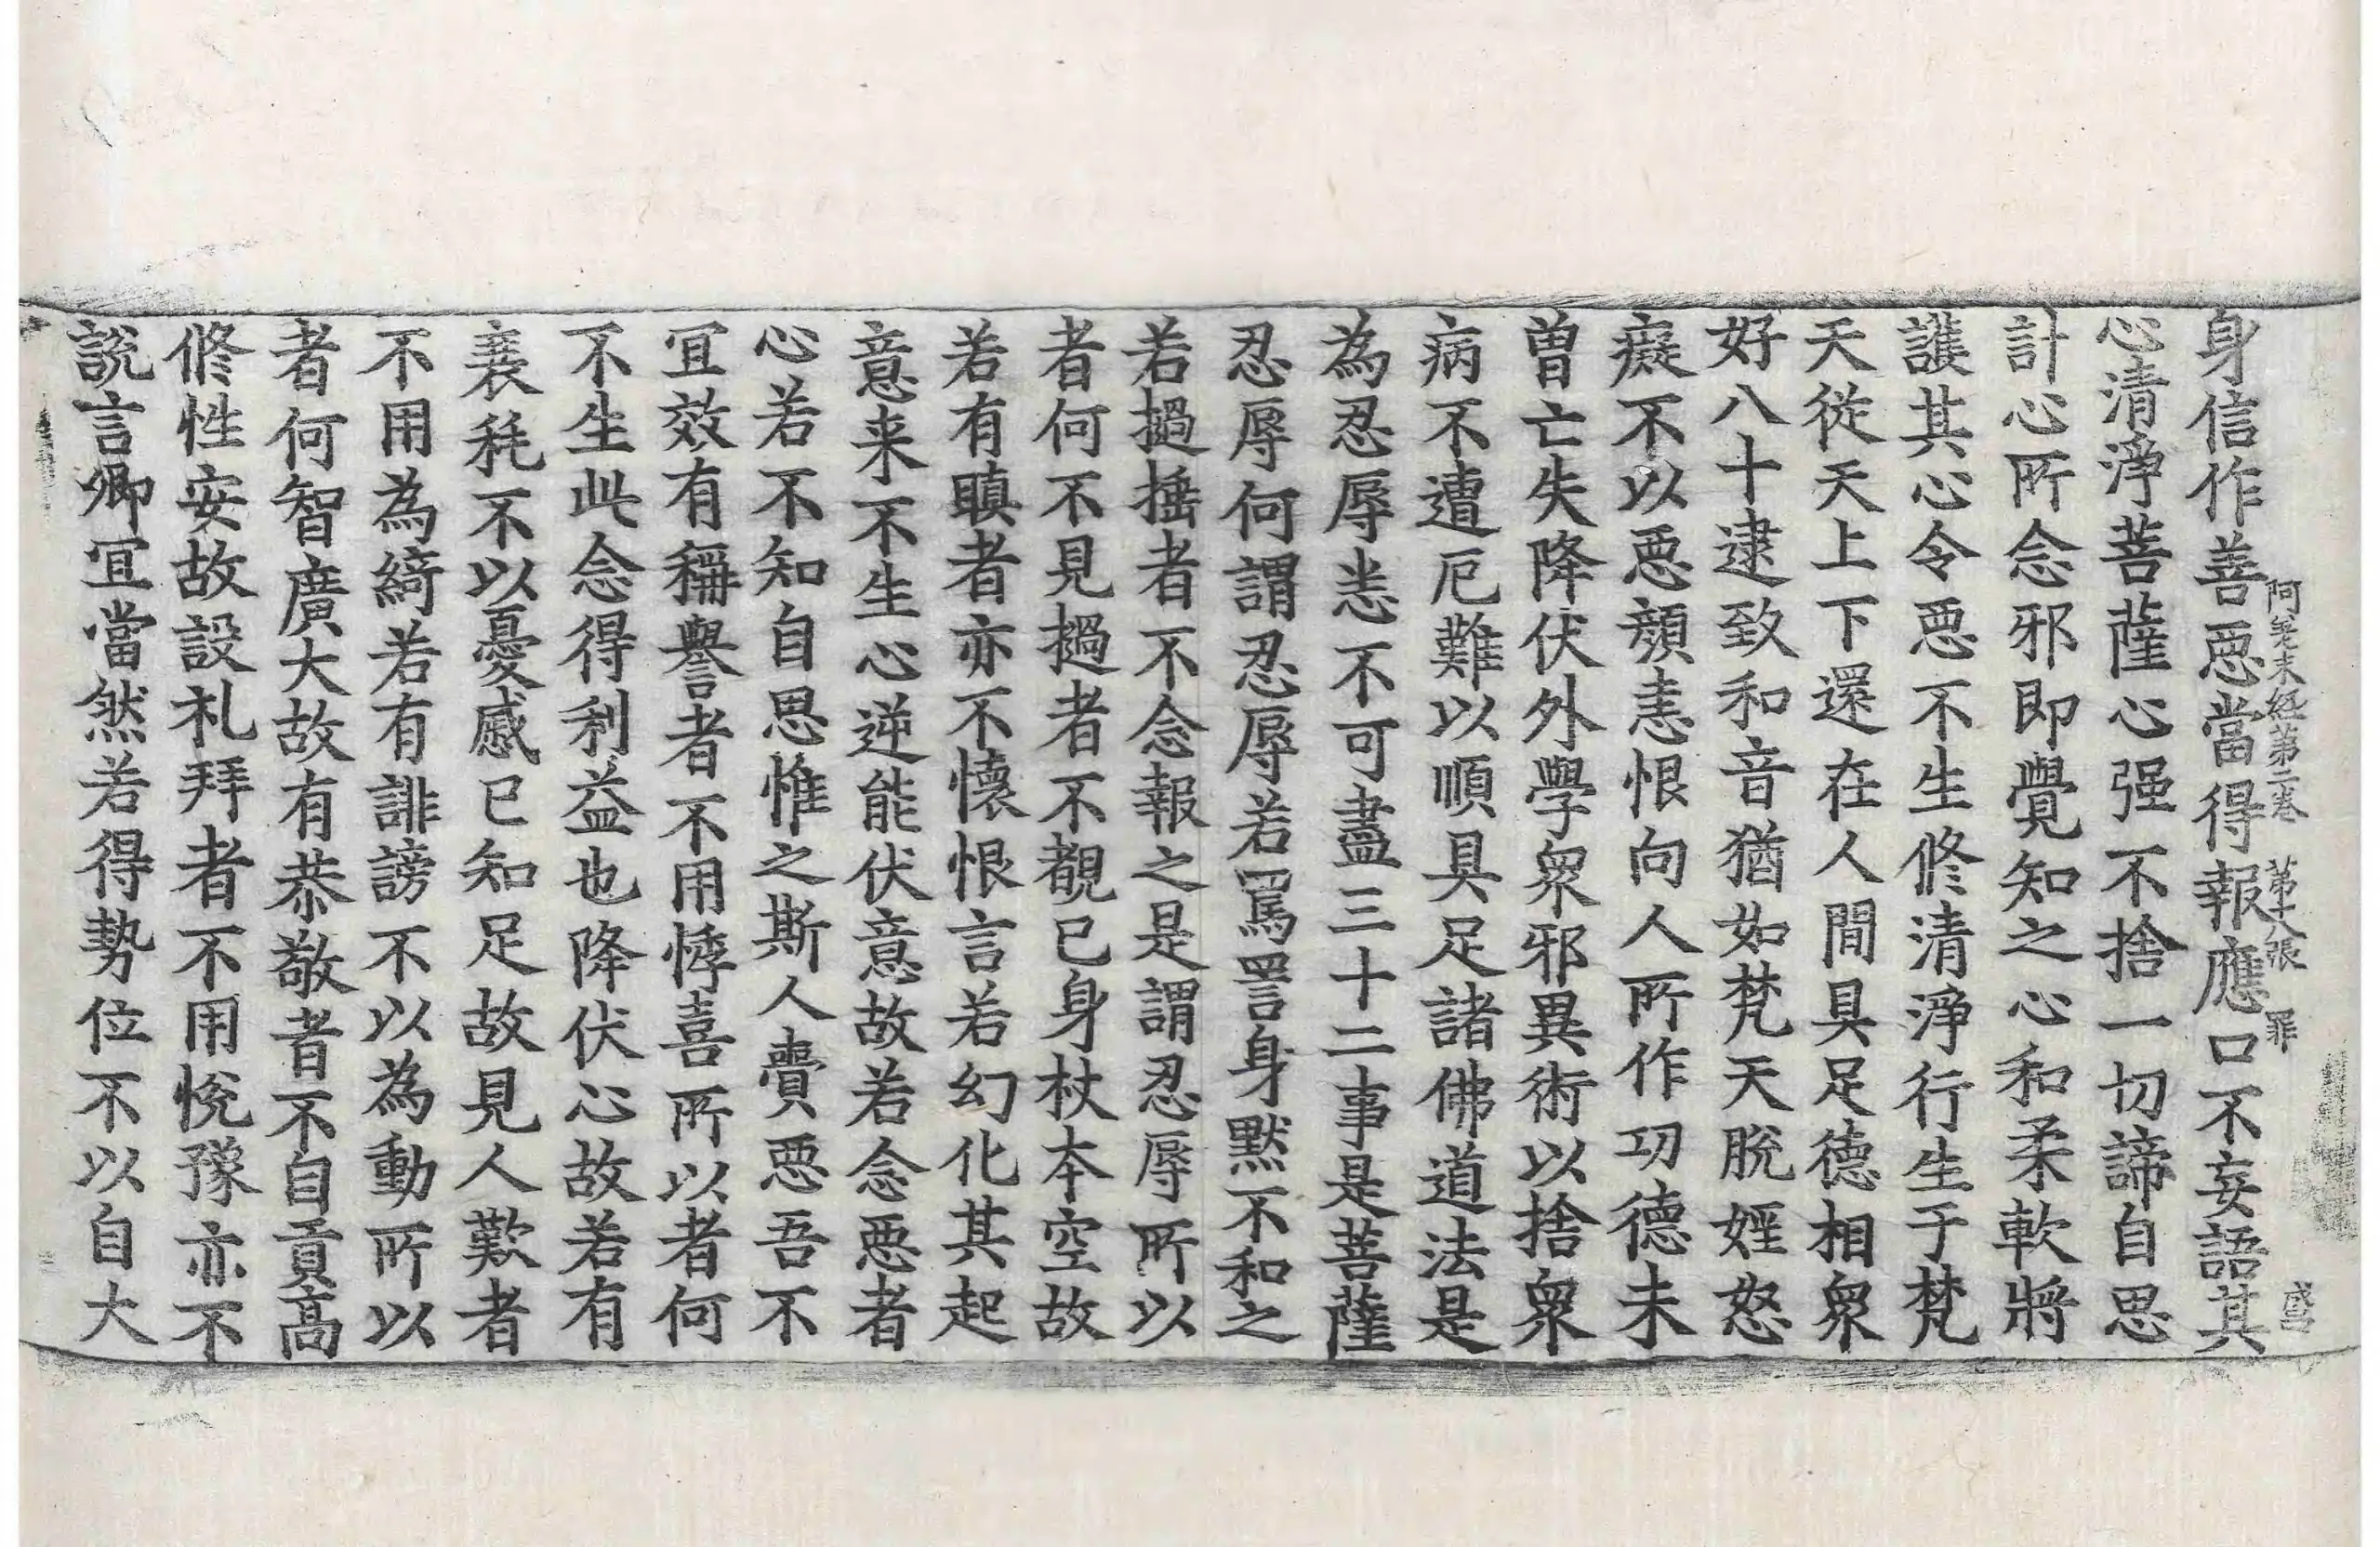 阿差末經第二卷 第十八張 罪
身信作善惡當得報應口不妄語其
心清淨菩薩心强不捨一切諦自思
計心所念邪即覺知之心和柔軟將
護其心令惡不生修清淨行生于梵
天從天上下還在人間具足德相衆
好八十逮致和音猶如梵天脫婬怒
癡不以惡顏恚恨向人所作功德未
曾亡失降伏外學衆邪異術以捨衆
病不遭厄難以順具足諸佛道法是
為忍辱恚不可盡三十二事是菩薩
忍辱何謂忍辱若罵詈身默不和之
若撾捶者不念報之是謂忍辱所以
者何不見撾者不覩已身杖本空故
若有瞋者亦不懷恨言若幻化其起
意来不生心逆能伏意故若念惡者
心若不知自思惟之斯人賷惡吾不
宜效有稱譽者不用悸喜所以者何
不生此念得利益也降伏心故若有
衰秏不以憂慼已知足故見人歎者
不用為綺若有誹謗不以為動所以
者何智廣大故有恭敬者不自貢高
修性安故設礼拜者不用悅豫亦不
說言卿宜當然若得勢位不以自大